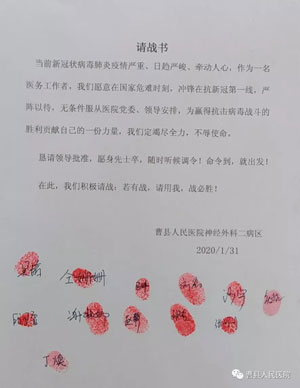 请战书
当前新冠状病毒肺炎疫情严重、日趋严峻、牵动人心，作为一名
医务工作者，我们愿意在国家危难时刻，冲锋在抗新冠第一线，严
阵以待，无条件服从医院党委、领导安排，为赢得抗击病毒战斗的
胜利贡献自己的一份力量，我们定竭尽全力，不辱使命。
恳请领导批准，愿身先士卒，随时听候调令！命令到，就出发！
在此，我们积极请战：若有战，请用我，战必胜！
曹县人民医院神经外科二病区
2020/1/31
曹县人民医院